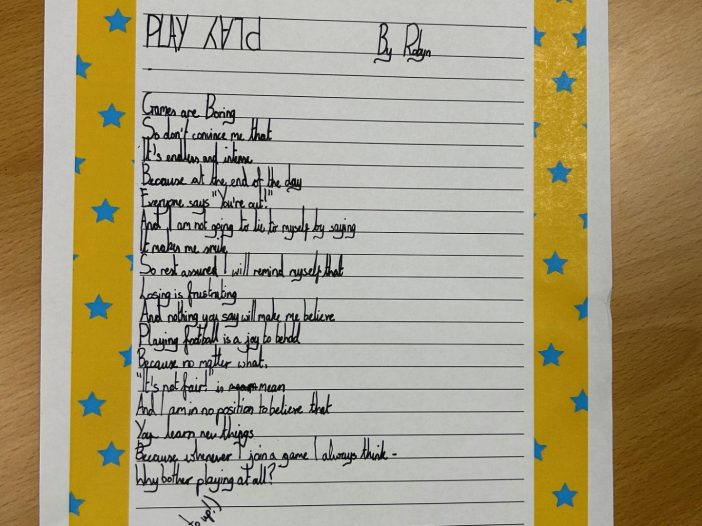 PLAY PLAY
By Robyn
Games are Boring
So don't convince me that
It's endless and intense
Because at the end of the day
Everyone says "You're out!"
And I am not going to lie to myself by saying
It makes me smile
So rest assured I will remind myself that
Losing is frustrating
And nothing you say will make me believe
Playing football is a joy to behold
Because no matter what,
"It's not fair!" is mean
And I am in no position to believe that
You learn new things
Because whenever I join a game I always think -
Why bother playing at all?
to up!)